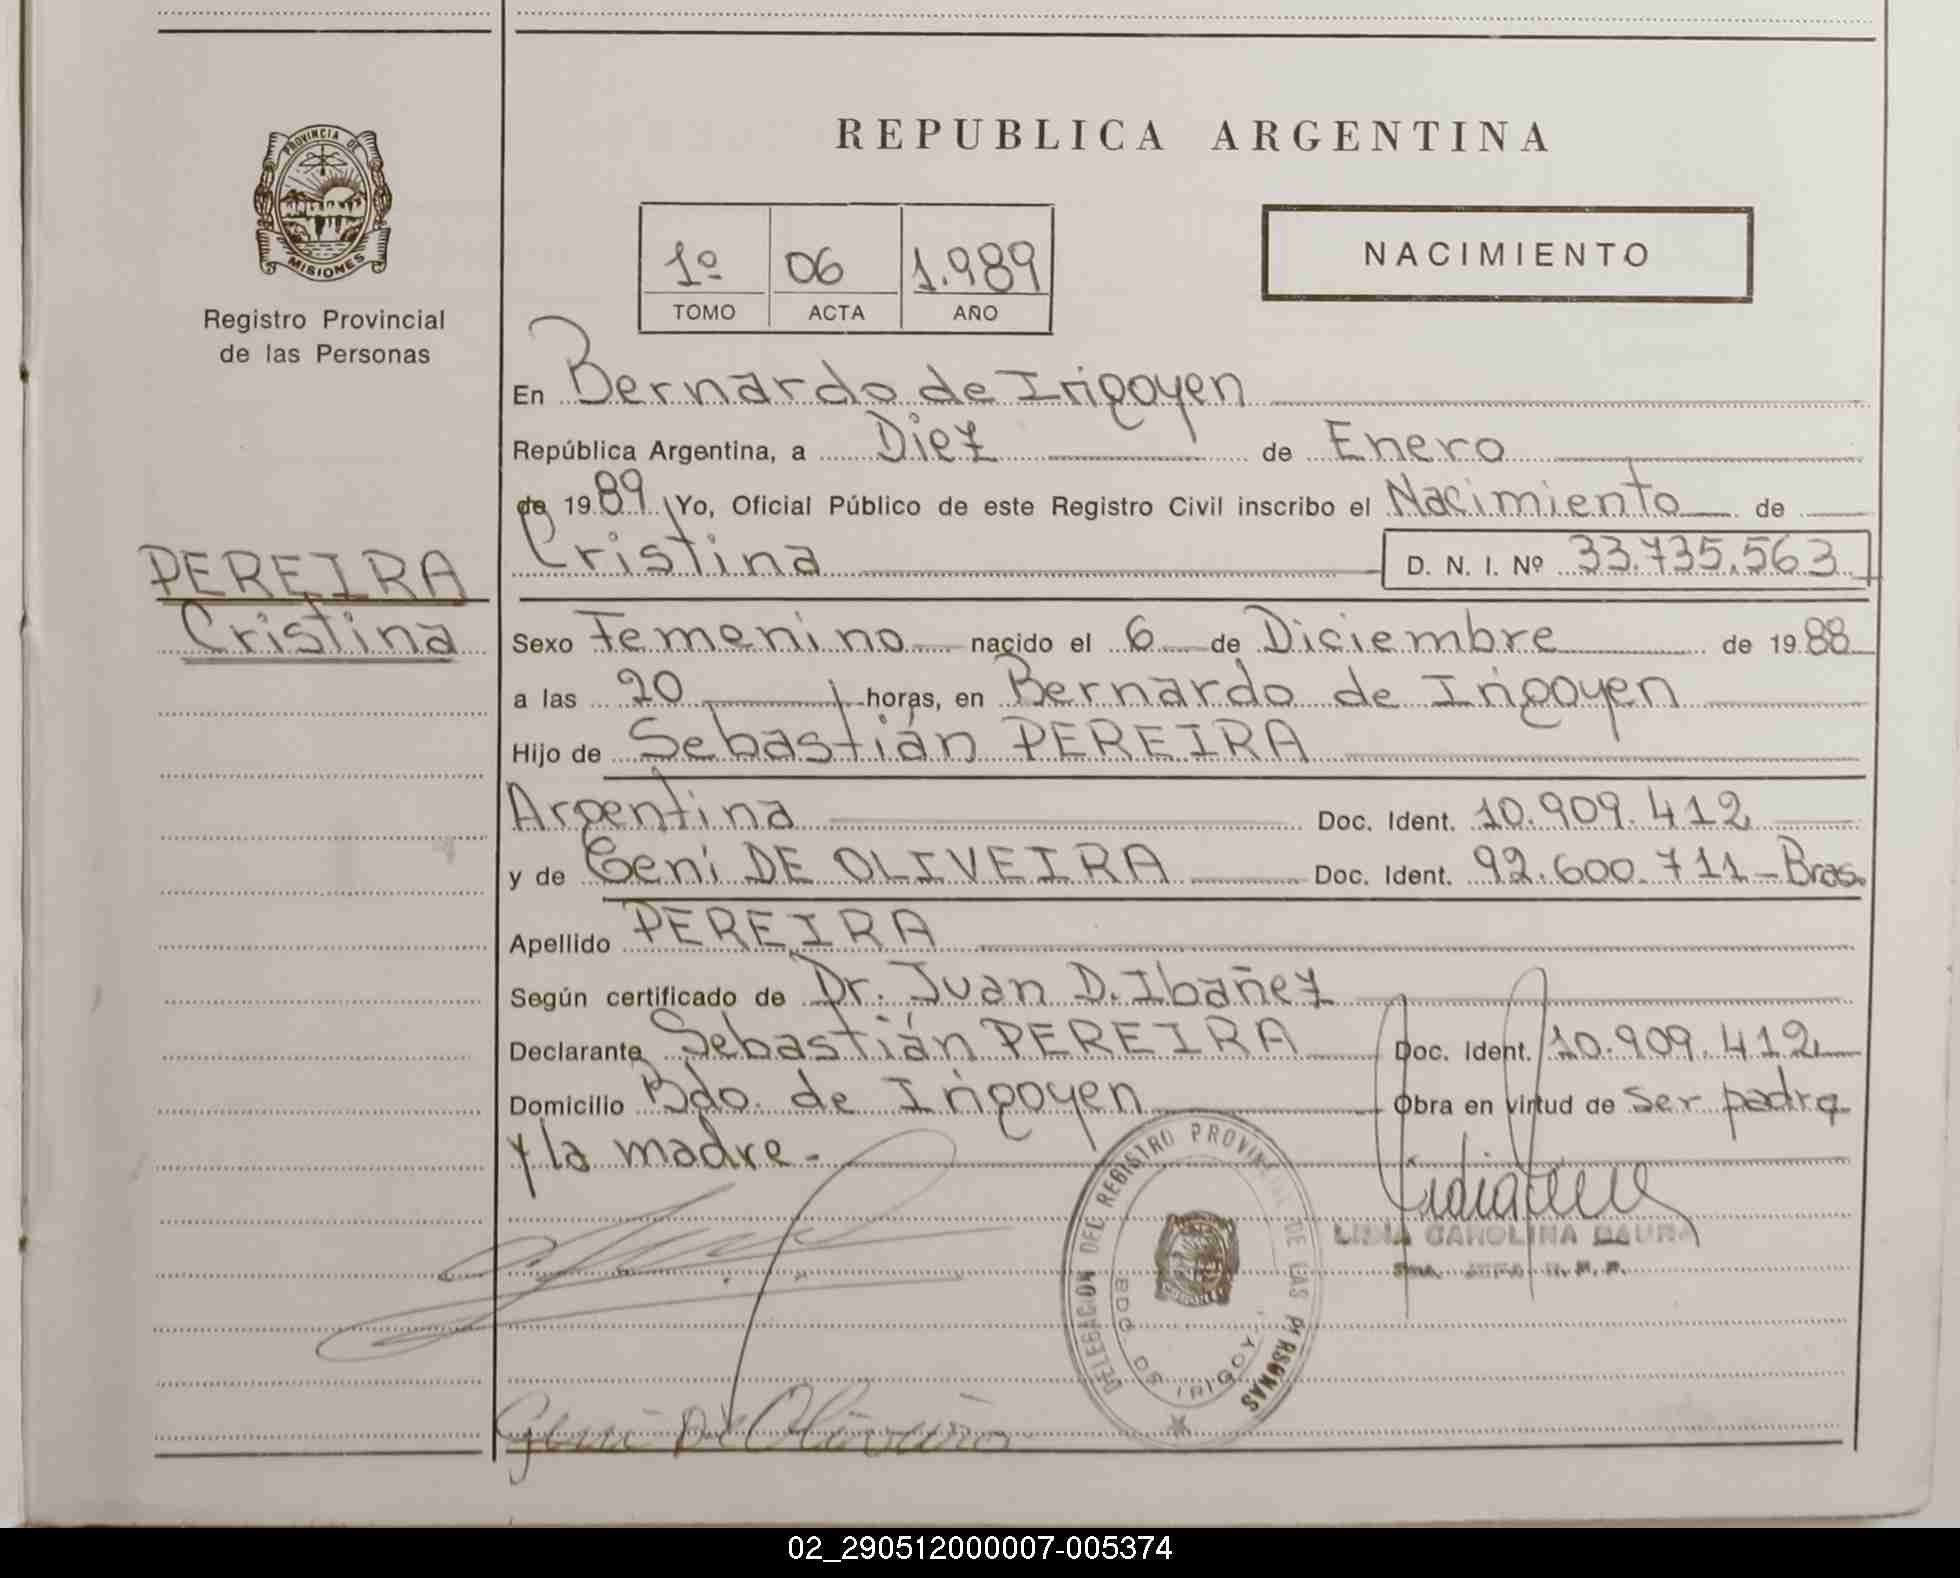 REPUBLICA ARGENTINA
PROVINCIA DE
MISIONES
Registro Provincial
de las Personas
1º 06 1.989
TOMO ACTA AÑO
NACIMIENTO
En Bernardo de Irigoyen
República Argentina, a Diez de Enero
de 19 89 Yo, Oficial Público de este Registro Civil inscribo el Nacimiento de
Cristina D. N. I. Nº 33.735.563
PEREIRA
Cristina
Sexo Femenino nacido el 6 de Diciembre de 19 88
a las 20 horas, en Bernardo de Irigoyen
Hijo de Sebastián PEREIRA
Argentina Doc. Ident. 10.909.412
y de Ceni DE OLIVEIRA Doc. Ident. 92.600.711 - Bras.
Apellido PEREIRA
Según certificado de Dr. Juan D. Ibañez
Declarante Sebastián PEREIRA Doc. Ident. 10.909.412
Domicilio Bdo. de Irigoyen Obra en virtud de ser padre
y la madre.-
DELEGACION DEL REGISTRO PROVINCIAL DE LAS PERSONAS
BDO DE IRIGOY.
CAROLINA DAURA
De Oliveira
02_290512000007-005374